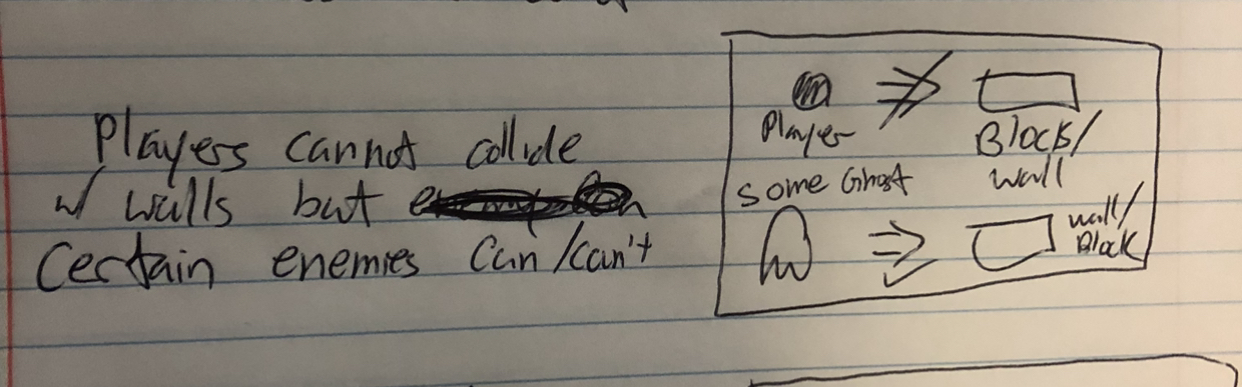 Players cannot collide
w/ walls but
Certain enemies can/can't
Player
Block/
wall
some Ghost
wall/
Block